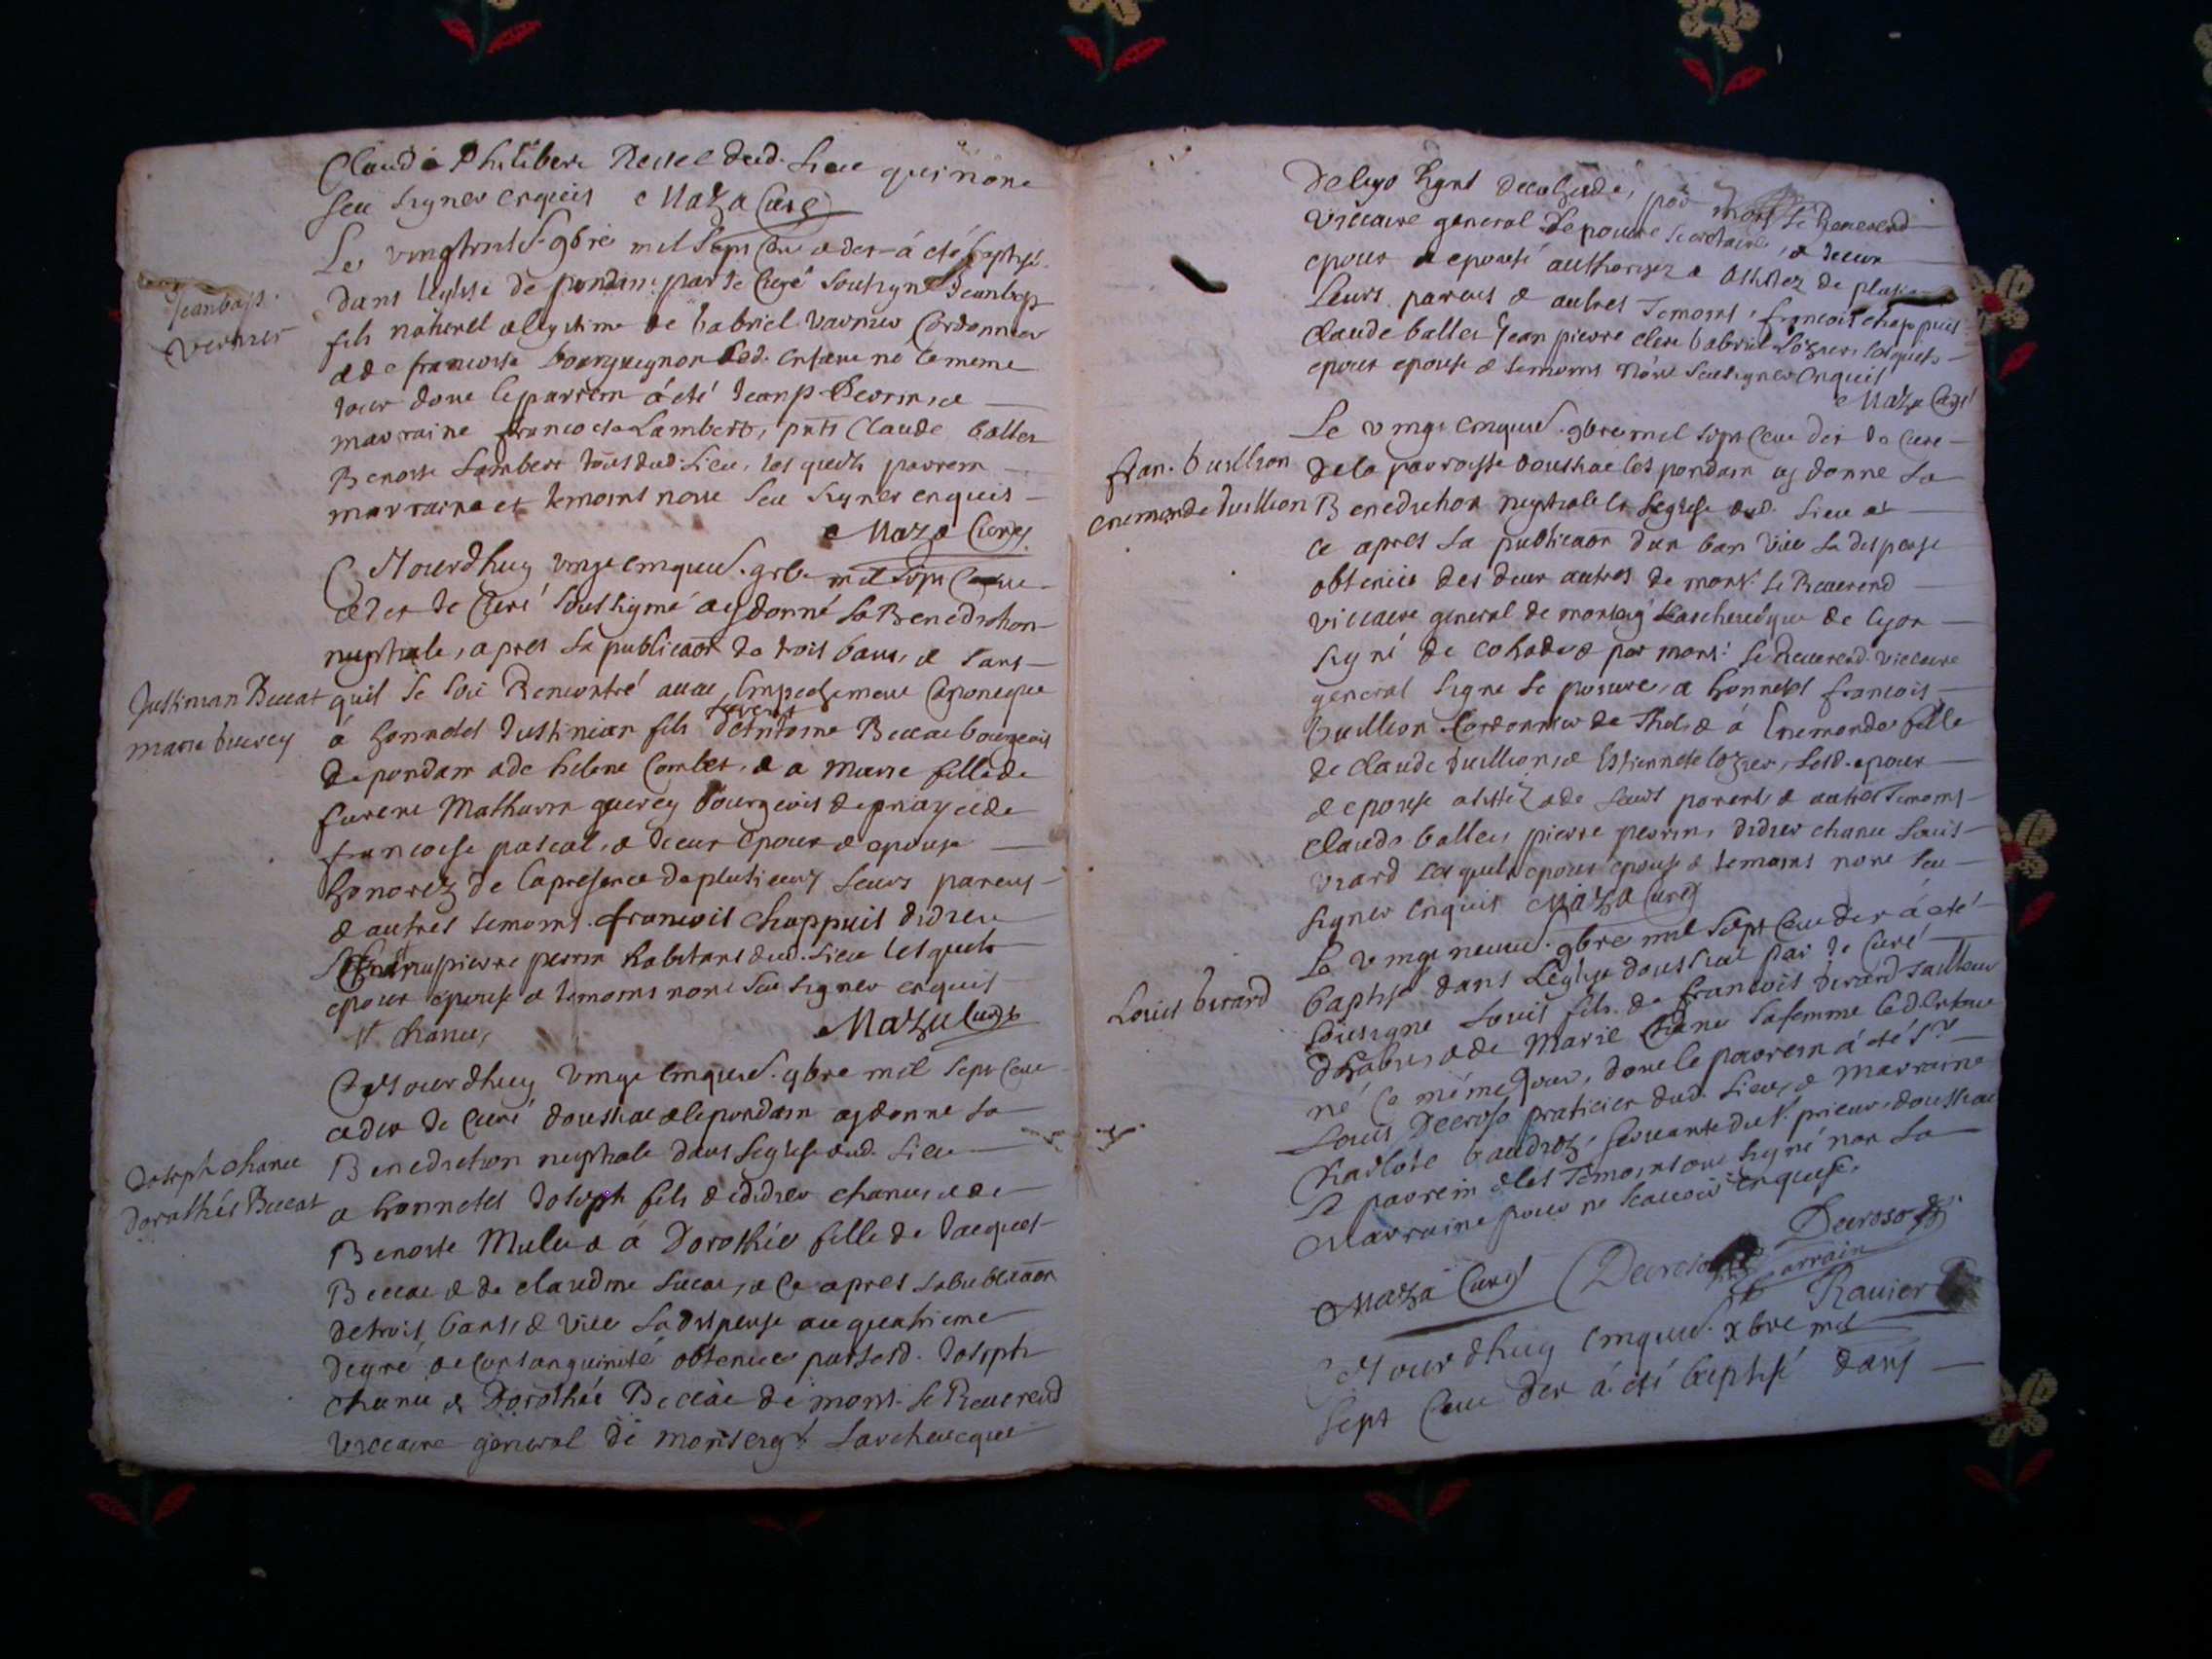 Claude Philibert dud. lieu qui nont
sceu signer enquis Maza Curé
Jeanbap.
Vernier
Le vingthuict 9bre mil sept cent et dix a eté baptisé
dans leglise de pondain par le Curé soussigné Jeanbap
fils naturel et legitime de Gabriel Varnier Cordonnier
et de francoise bourguignon led. enfant né le meme
jour dont le parrein a eté Jean p. Perrin et
marraine francoise Lambert, pnts Claude ballet
Benoite Lambert tous dud. lieu, lesquels parrein
marraine et temoins nont sceu signer enquis
Maza Curé
Justinian Beccat
marie quercy
Cejourdhuy vingt cinquie. 9bre mil sept cent
et dix le Curé soussigné ay donné la Benediction
nuptiale, apres la publicaon de trois bans, et sans
quil se soit Rencontré aucun Empechement Canonique
à honnetes Justinian fils dAntoine Beccat bourgeois
de pondain et de helene Combet, et a Marie fille de
Mathurin quercy bourgeois de priay et de
francoise pascal, et iceux epoux et epouse
honorez de la presence de plusieurs leurs parens
et autres temoins. francois Chappuis didier
pierre perrin habitans dud. lieu lesquels
epoux epouse et temoins nont sceu signer enquis
Chanu, Maza Curé
Joseph chanu
Dorothée Beccat
Cejourdhuy vingt cinquie. 9bre mil sept cent
et dix le Curé doussiat et le pondain ay donné la
Benediction nuptiale dans leglise dud. lieu
a honnetes Joseph fils de didier chanu et de
Benoite Mulet et à Dorothée fille de Jacques
Beccat et de claudine et ce apres la publicaon
de trois bans, et veu la dispense au quatrieme
degré de consanguinité obtenue par lesd. Joseph
chanu et Dorothée Beccat de mons. le Reverend
viccaire general de monseigr. Larcheveque
de lyon signé de cohade, par mons. le Reverend
viccaire general Lepoivre secretaire, et iceux
epoux et epouse authorisez et assistez de plusieurs
leurs parens et autres temoins, francois chappuis
claude ballet Jean pierre clerc Gabriel Lozier lesquels
epoux epouse et temoins nont sceu signer enquis
Maza Curé
fran. buillion
enemonde buillion
Le vingt cinquie. 9bre mil sept cent dix le Curé
de la parroisse doussiat les pondain ay donné la
Benediction nuptiale en leglise dud. lieu et
ce apres la publicaon dun ban veu la dispense
obtenue des deux autres de mons. le Reverend
viccaire general de monseigr Larcheveque de lyon
signé de cohade et par mons. le Reverend viccaire
general signé le poivre, a honnetes francois
buillion Cordonnier de Thol, et à Enemonde fille
de claude buillion et Estiennete lozier, lesd. epoux
et epouse assistez de leurs parents et autres temoins
claude ballet, pierre perrin, didier chanu Louis
virard lesquels epoux epouse et temoins nont sceu
signer enquis Maza Curé
Louis berard
Le vingt neuvie. 9bre mil sept cent dix à eté
baptisé dans leglise doussiat par le Curé
soussigné Louis fils de francois berard tailleur
dhabits et de Marie Chanu sa femme led. enfant
né le même jour, dont le parrein a eté Sr
Louis Decroso praticien dud. lieu, et Marraine
Charlote baudroz servante du Sr. prieur doussiat
Le parrein et les temoins ont signé non la
Marraine pour ne scavoir enquise.
Maza Curé Decroso Decroso
parrain
Ravier
Cejourdhuy cinquie. xbre mil
sept cent dix à eté baptisé dans